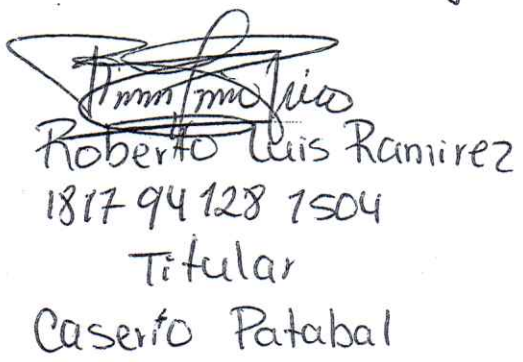 Roberto Luis Ramirez
1817 94 128 1504
Titular
Caserío Patabal